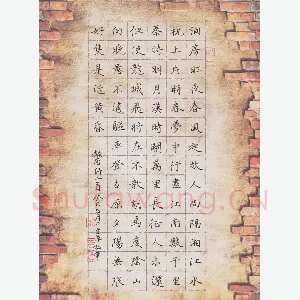 洞房昨夜春風起故人尚隔湘江水
枕上片時春夢中行盡江南數千里
秦時明月漢時關萬里長征人未還
但使龍城飛將在不教胡馬度陰山
向晚意不適驅車登古原夕陽無限
好隻是近黃昏